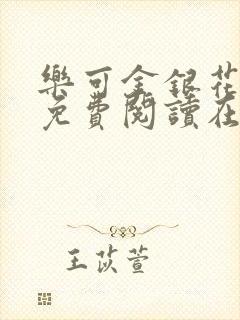 樂可金銀花
免費閱讀在
王苡萱